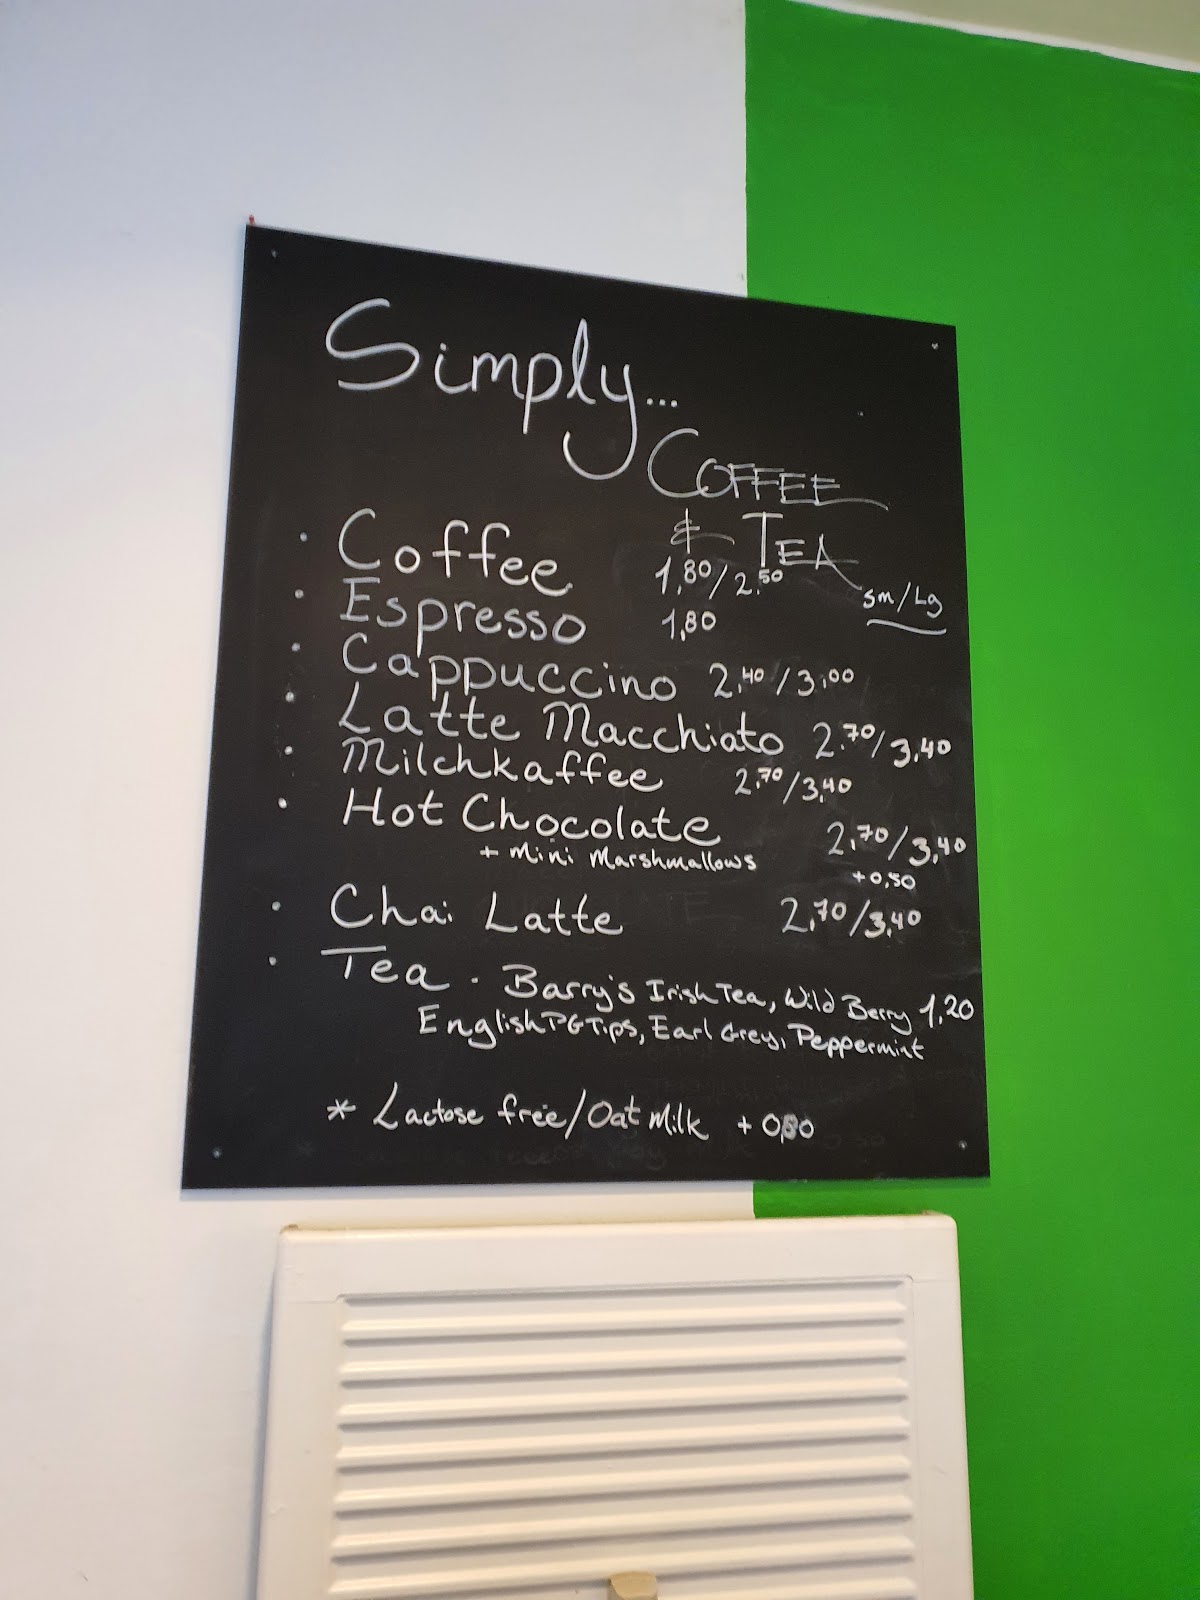 Simply...
COFFEE
& TEA
sm/Lg
• Coffee 1,80/2,50
• Espresso 1,80
• Cappuccino 2,40/3,00
• Latte Macchiato 2,70/3,40
• Milchkaffee 2,70/3,40
• Hot Chocolate 2,70/3,40
+ Mini Marshmallows +0,50
• Chai Latte 2,70/3,40
• Tea - Barry's Irish Tea, Wild Berry 1,20
English PG Tips, Earl Grey, Peppermint
* Lactose free/Oat Milk